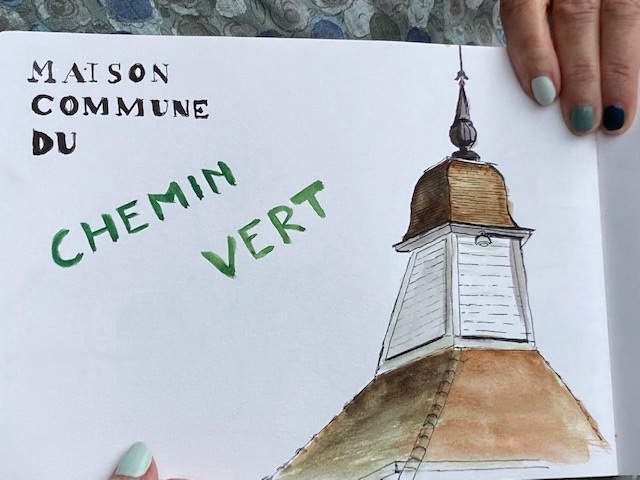 MAISON
COMMUNE
DU
CHEMIN
VERT